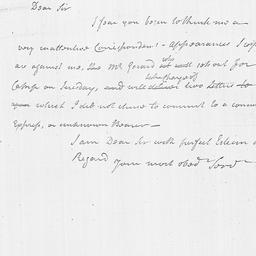 Dear Sir
I fear you begin to think me a
very inattentive Correspondent - appearances I
are against me. Mr Gerard who will set out for
Camp on Sunday, and will deliver two Letters to
which I did not chuse to commit to a
Express, or unknown Bearer —
I am Dear Sir with perfect Esteem
Regard your most obed